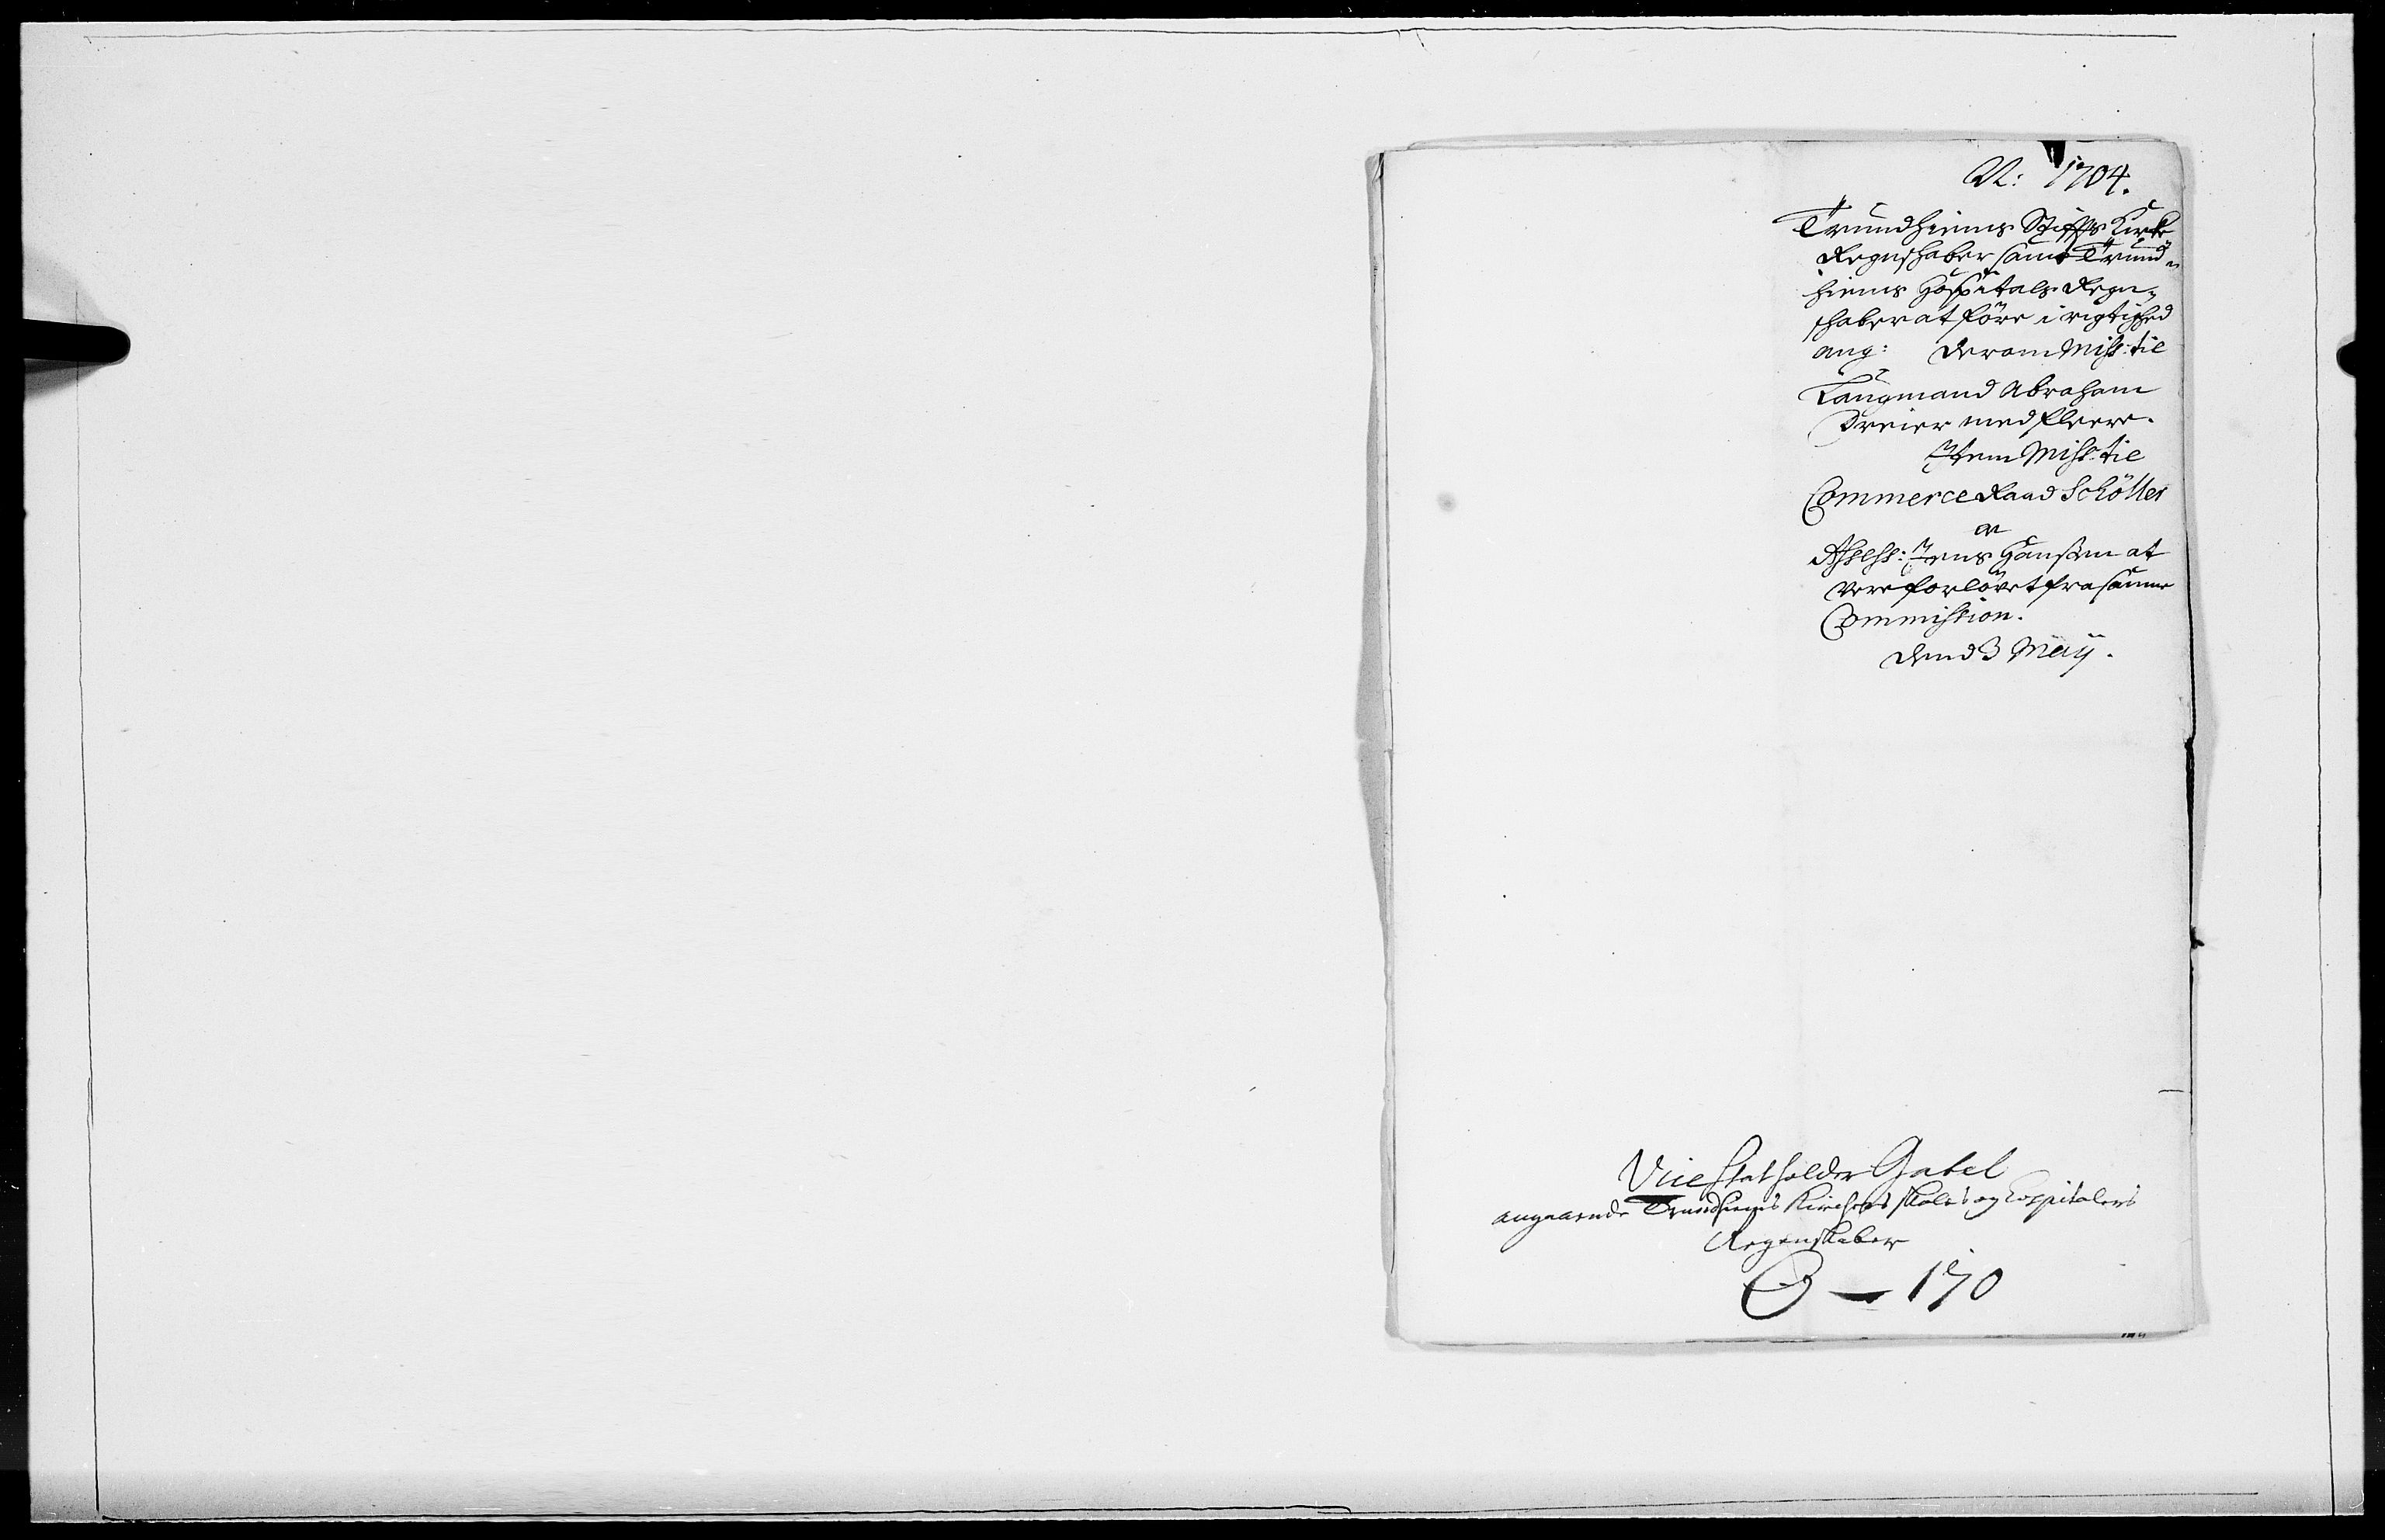 N: 1704.
Trundhiems Stiffts Kirke
Regnschaber samt Trund-
hiems Hospitals Regn-
schaber at före i rigtighed
ang: derom Miss: til
Laugmand Abraham
Dreier med fleere.
Item Miss: til
Commerce Raad Schöller
oc
Assess: Jens Hansen at
vere forlövet fra samme
Commission.
dend 3 Maÿ.
Vice Statholder Gabel
angaaende Trundhiems Kirchers skoles og Hospitalers
Regenskaber
O — 170